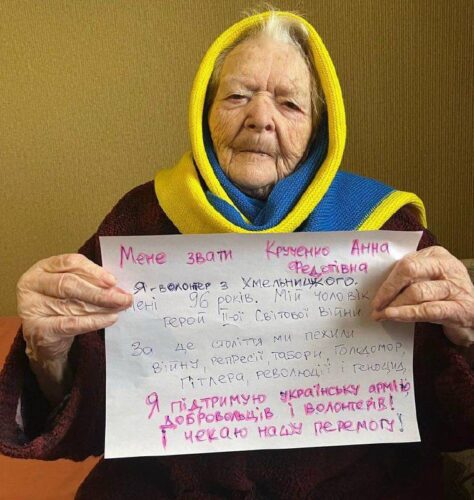 Мене звати Крученко Анна
Федотівна
Я - волонтер з Хмельницкого.
Мені 96 років. Мій чоловік
герой ІІ-ої Світової війни
За це століття ми пежили
війну, репресії, табори, Голодомор,
Гітлера, революції і геноцид.
Я підтримую українську армію,
добровольців і волонтерів!
і чекаю нашу перемогу!